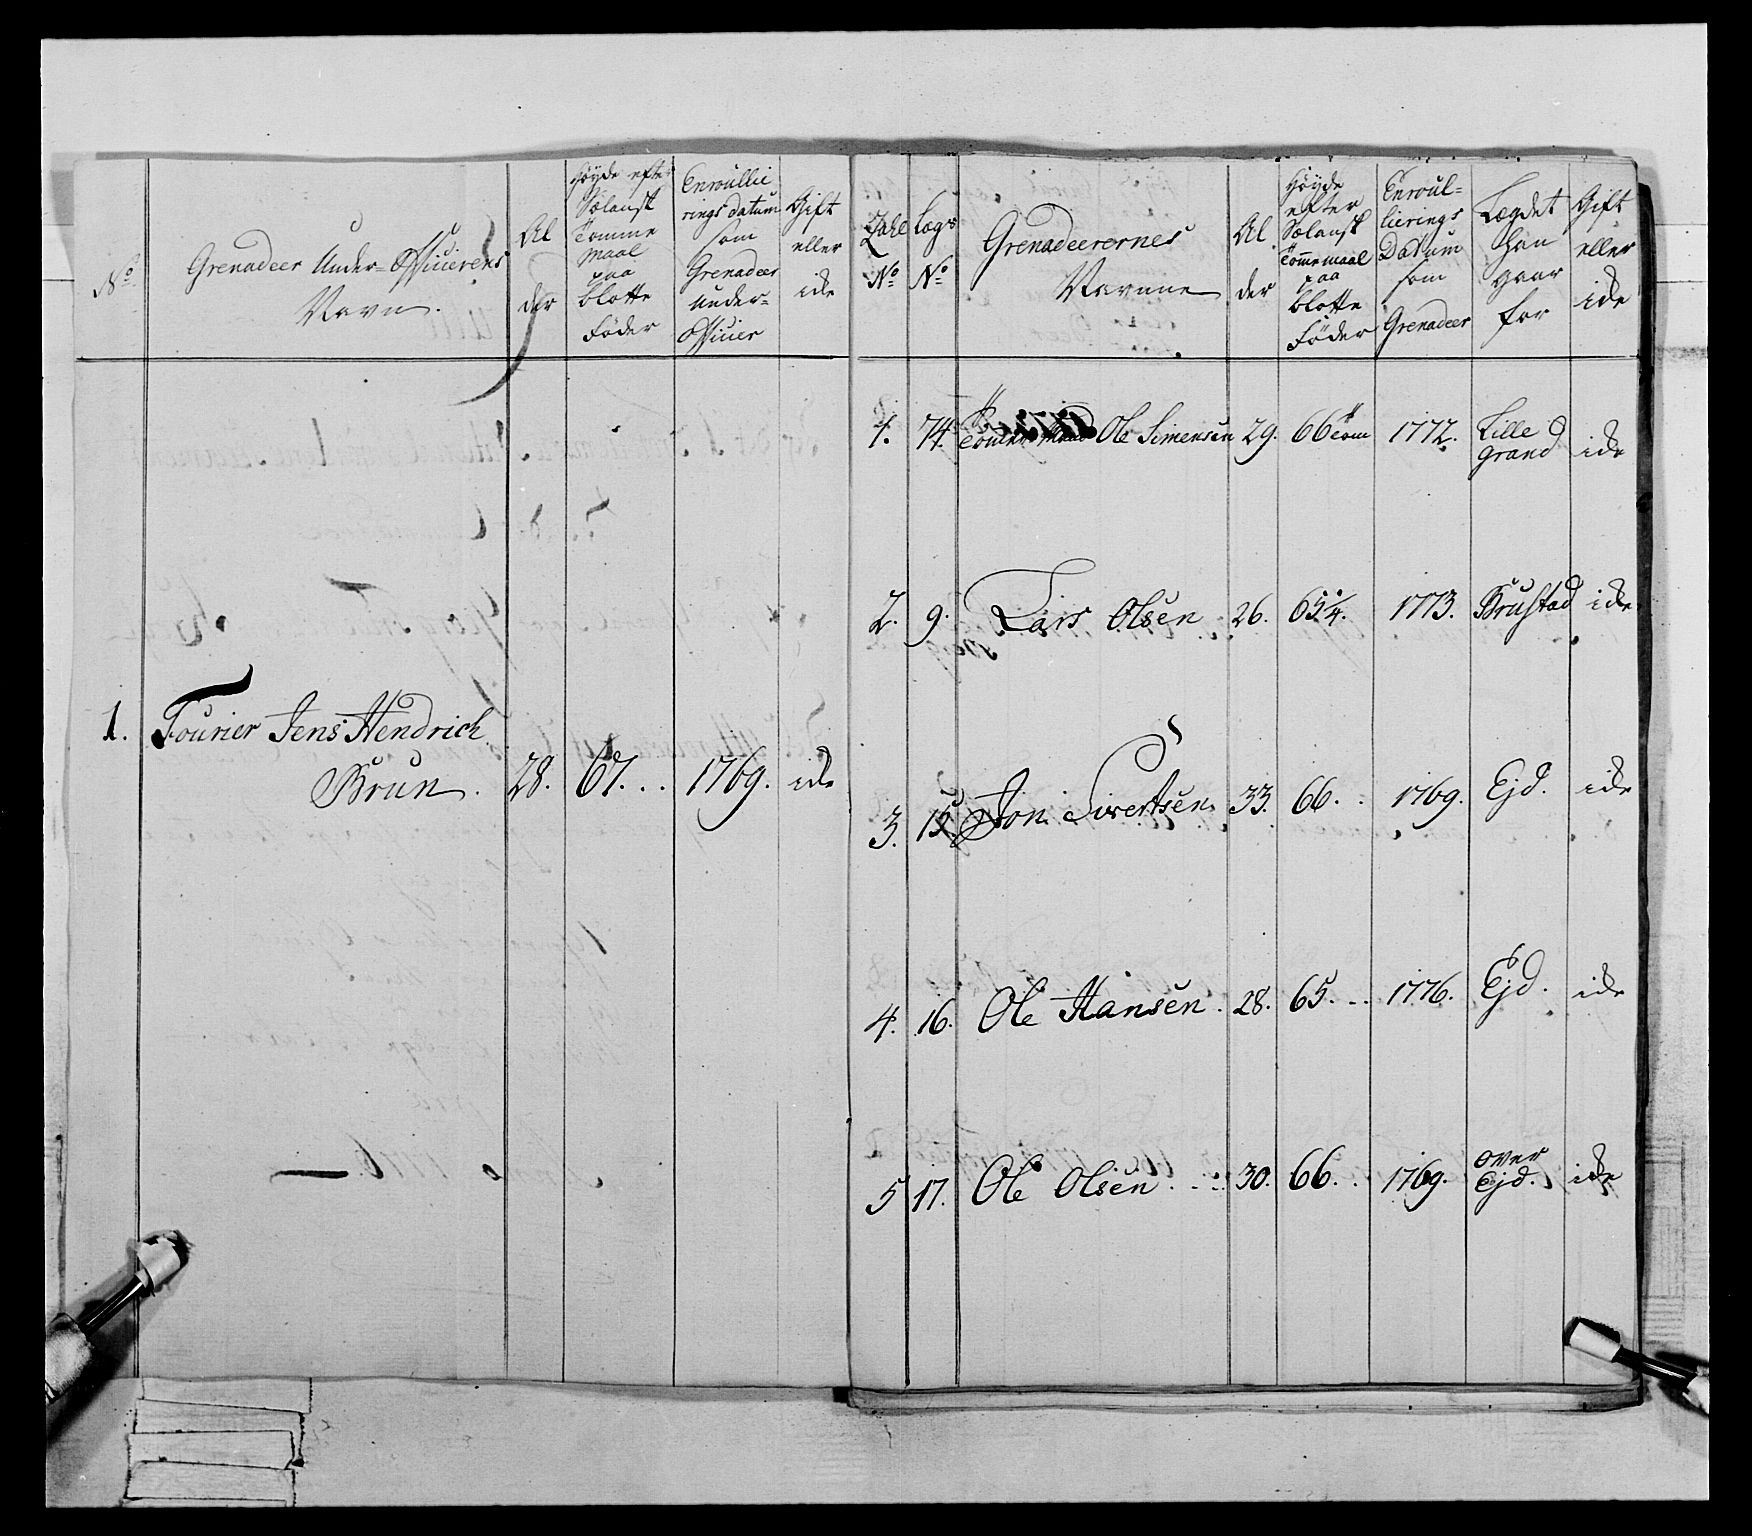 No
Grenadeer Under-Officierens
Navn.
Al
der
Høyde efter
Sælansk
Tomme
Maal
paa
blotte
Føder
Enroullie
rings datum
som
Grenadeer
Under-
Officier
Gift
eller
ide
1.
Fourier Jens Hendrich
Brun.
28.
67...
1769.
ide
Zahl
No
Legs
No
Grenadeerernes
Navnne
Al
der
Høyde
efter
Sælansk
Tomemaal
paa
blotte
Føder
Enroul-
lierings
Datum
som
Grenadeer
Legdet
han
gaar
for
Gift
eller
ide
1. 74. Ole Simensen 29. 66 Tom 1772. Lille
Grand ide
2. 9. Lars Olsen 26. 65 1/4. 1773. Brustad ide
3. 15. Jon Sivertsen. 33. 66.. 1769. Ejd. ide
4. 16. Ole Hansen. 28. 65... 1776. Ejd. ide
5 17. Ole Olsen... 30. 66.. 1769. over
Ejd. ide